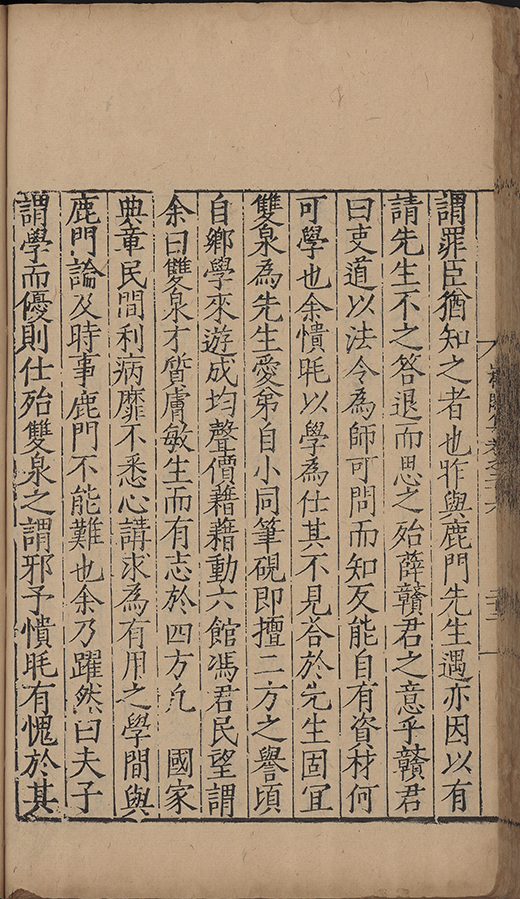 謂罪臣猶知之者也昨與鹿門先生遇亦因以有
請先生不之答退而思之殆薛贛君之意乎贛君
曰吏道以法令為師可問而知及能自有資材何
可學也余憒眊以學為仕其不見答於先生固宜
雙泉為先生愛弟自小同筆硯即擅二方之譽頃
自鄉學來遊成均聲價藉藉動六館馮君民望謂
余曰雙泉才質膚敏生而有志於四方凡　國家
典章民間利病靡不悉心講求為有用之學間與
鹿門論及時事鹿門不能難也余乃躍然曰夫子
謂學而優則仕殆雙泉之謂邪予憒眊有愧於其